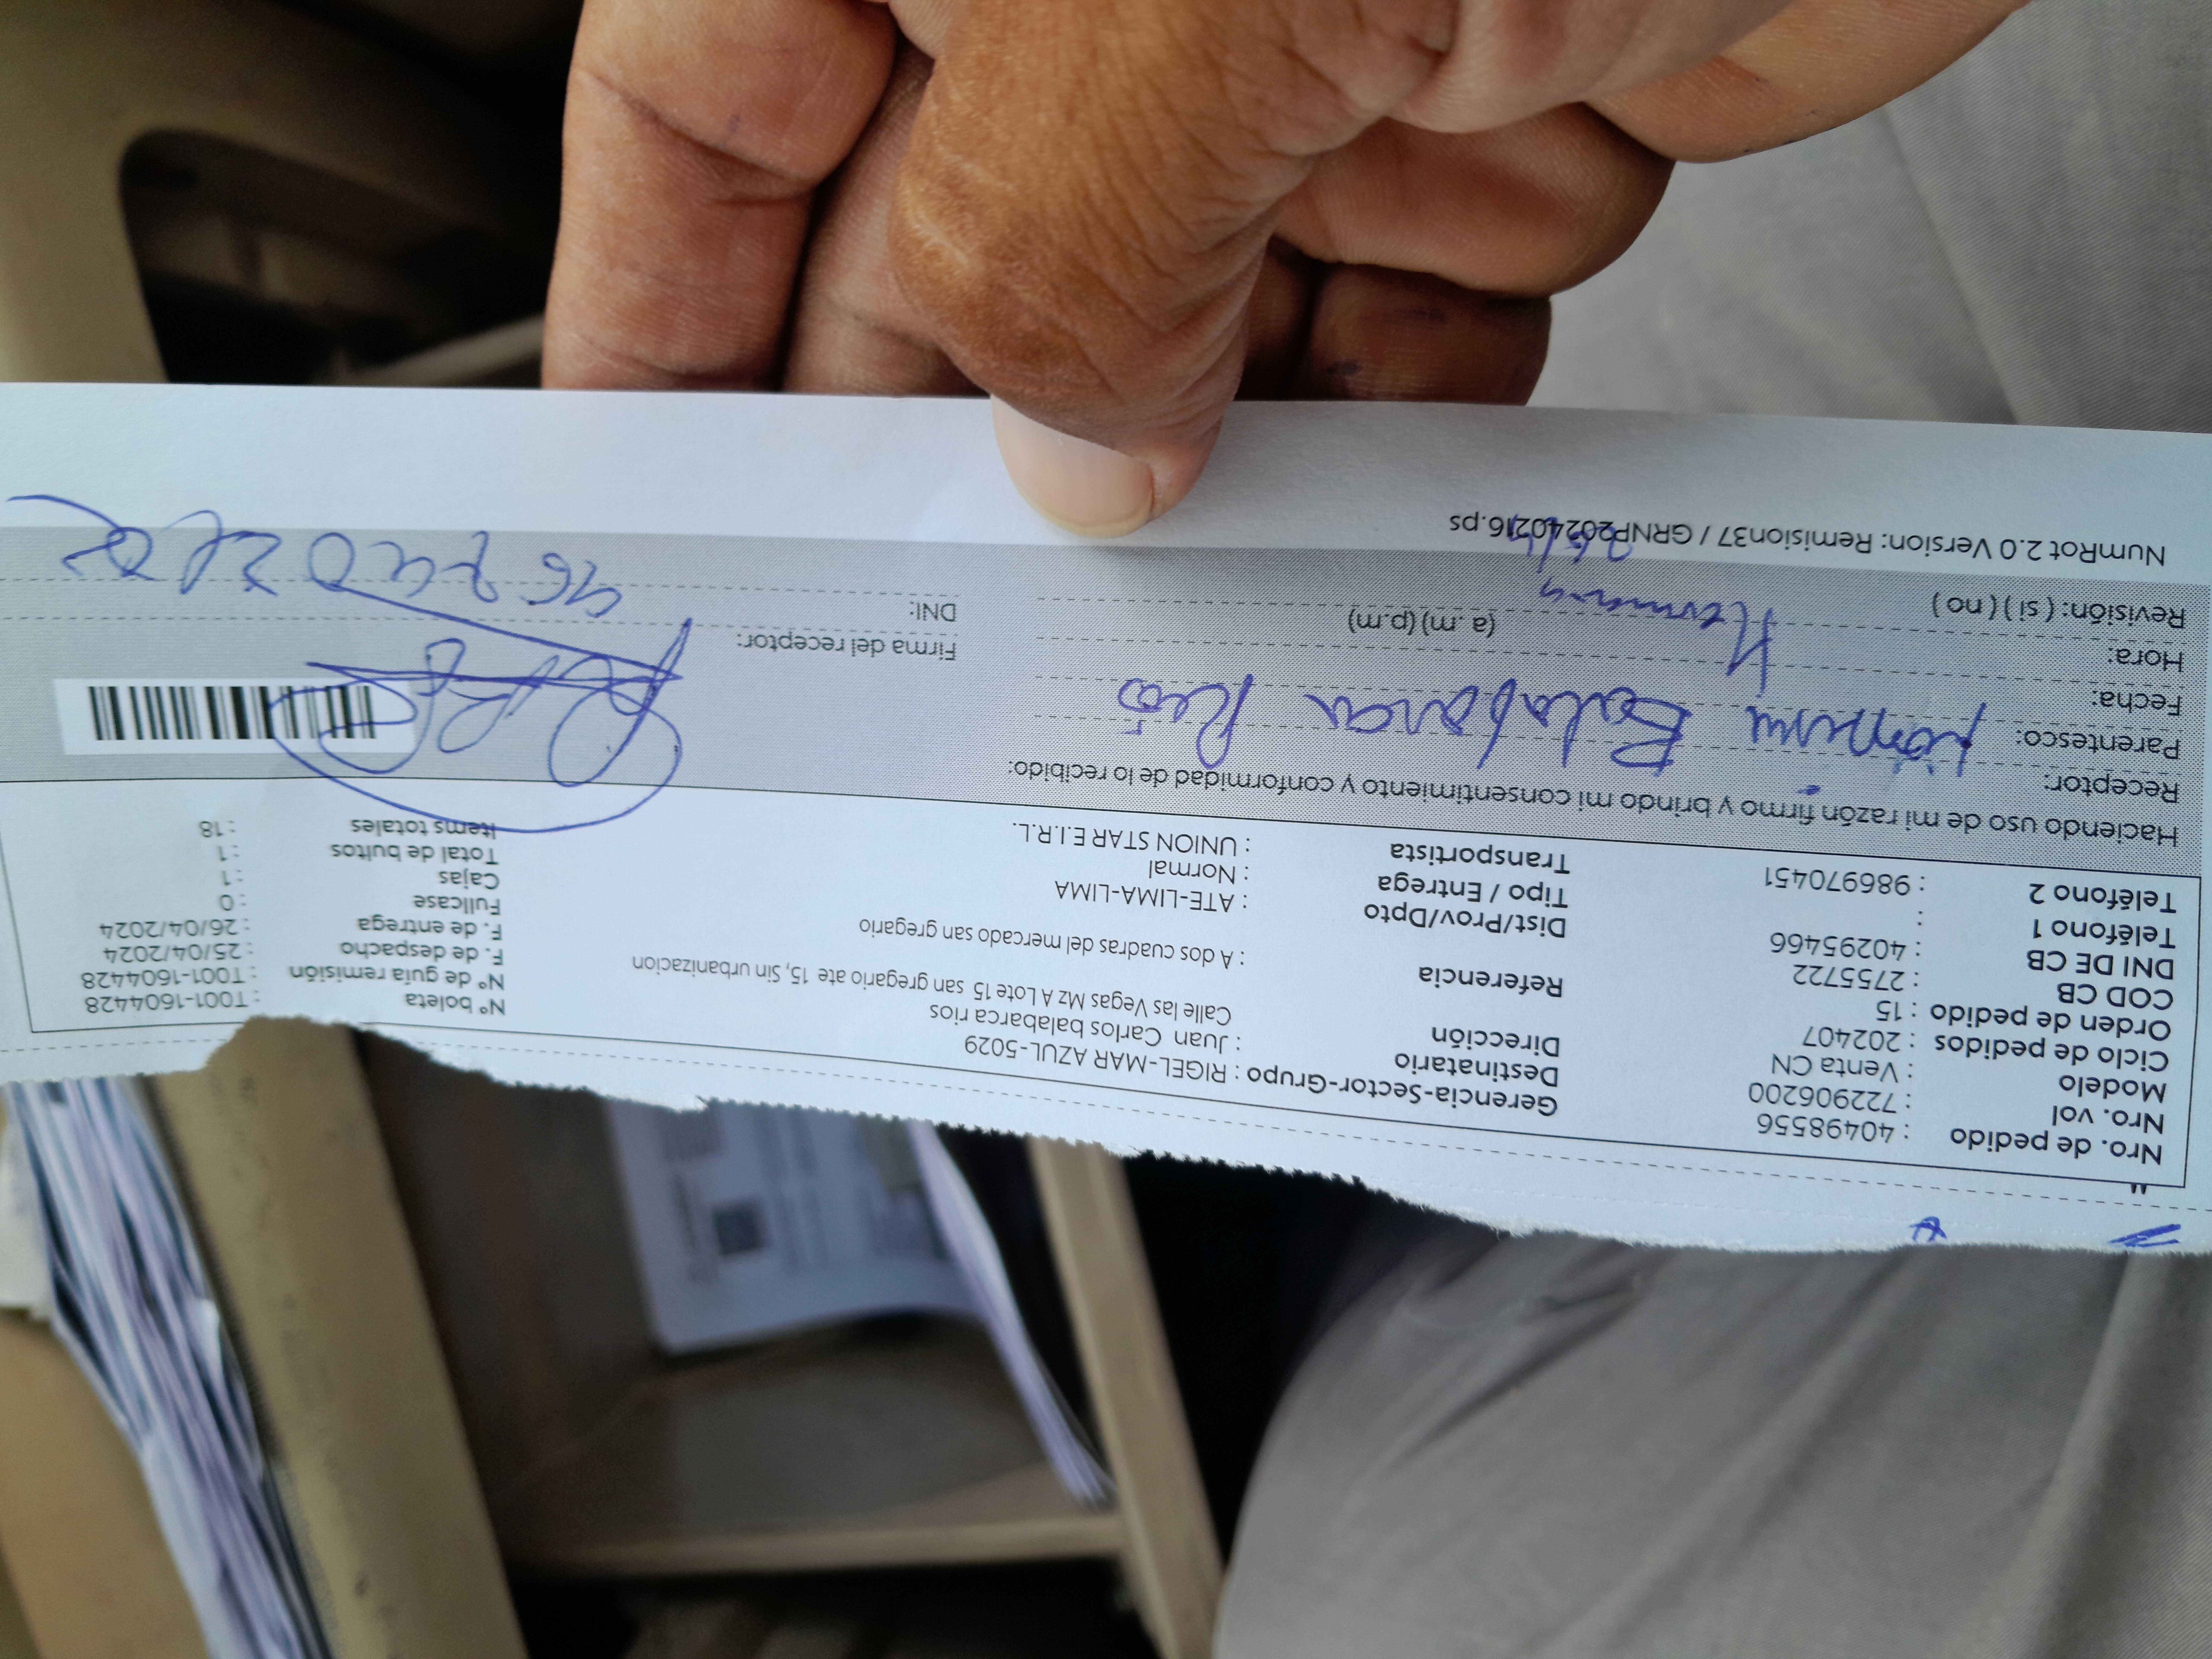 Nro. de pedido : 40498556
Nro. vol : 722906200
Modelo : Venta CN
Ciclo de pedidos : 202407
Orden de pedido : 15
COD CB : 2755722
DNI DE CB : 40295466
Teléfono 1 :
Teléfono 2 : 986970451
Gerencia-Sector-Grupo : RIGEL-MAR AZUL-5029
Destinatario : Juan Carlos balabarca rios
Dirección Calle las Vegas Mz A Lote 15 san gregario ate 15, Sin urbanizacion
Referencia : A dos cuadras del mercado san gregario
Dist/Prov/Dpto : ATE-LIMA-LIMA
Tipo / Entrega : Normal
Transportista : UNION STAR E.I.R.L.
Nº boleta : T001-1604428
Nº de guía remisión : T001-1604428
F. de despacho : 25/04/2024
F. de entrega : 26/04/2024
Fullcase : 0
Cajas : 1
Total de bultos : 1
Items totales : 18
Haciendo uso de mi razón firmo y brindo mi consentimiento y conformidad de lo recibido:
Receptor: Balabarca Rios
Parentesco:
Fecha:
Hora: (a.m) (p.m)
Revisión: ( si ) ( no )
Firma del receptor:
DNI:
NumRot 2.0 Version: Remision37 / GRNP20240216.ps